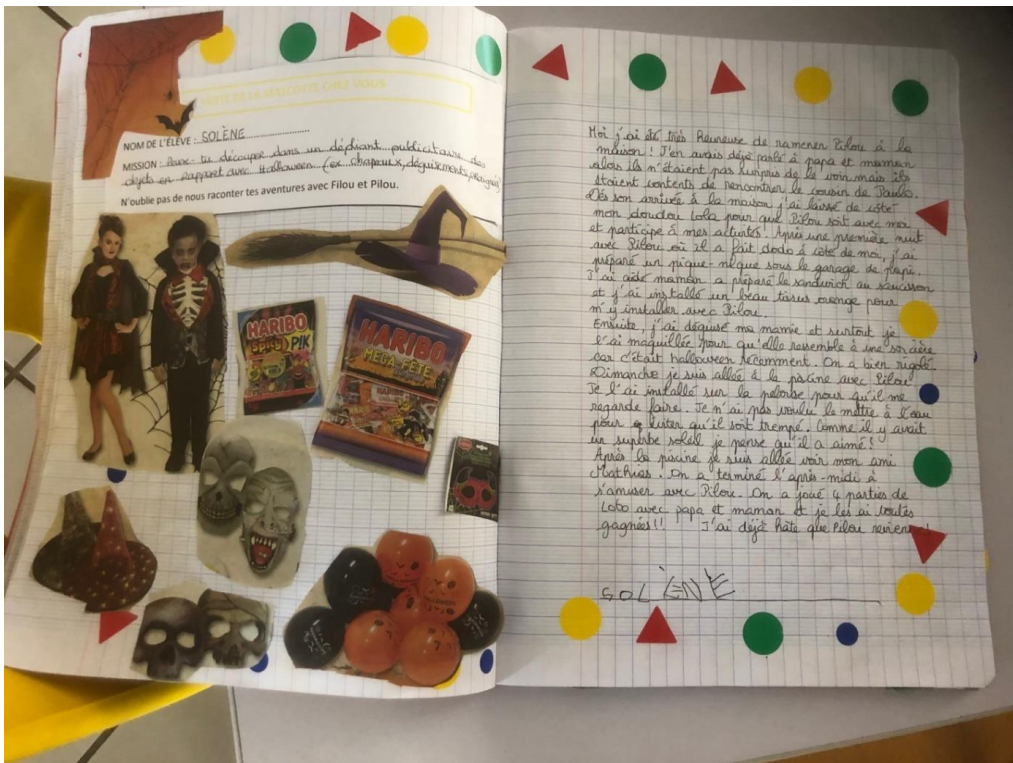 VISITE DE LA MASCOTTE CHEZ VOUS
NOM DE L'ÉLÈVE : SOLÈNE
MISSION : Peux-tu découper dans un dépliant publicitaire des
objets en rapport avec Halloween (ex chapeaux, déguisements, araignées)
N'oublie pas de nous raconter tes aventures avec Filou et Pilou.
HARIBO
PIK
HARIBO
MEGA FÊTE
Moi j'ai été très heureuse de ramener Pilou à la
maison ! J'en avais déjà parlé à papa et maman
alors ils n'étaient pas surpris de le voir mais ils
étaient contents de rencontrer le cousin de
Dès son arrivée à la maison j'ai laissé de côté
mon doudou Lola pour que Pilou soit avec moi
et participe à mes activités ! Après une première nuit
avec Pilou où il a fait dodo à côté de moi, j'ai
préparé un pique-nique sous le garage de papi.
J'ai aidé maman a préparé le sandwich au saucisson
et j'ai installé un beau orange pour
m'y installer avec Pilou.
Ensuite, j'ai déguisé ma mamie et surtout je
l'ai maquillée pour qu'elle ressemble à une sorcière
car c'était halloween récemment. On a bien rigolé.
Dimanche je suis allée à la piscine avec Pilou !
Je l'ai installé sur la pelouse pour qu'il me
regarde faire. Je n'ai pas voulu le mettre à l'eau
pour éviter qu'il soit trempé. Comme il y avait
un superbe soleil je pense qu'il a aimé !
Après la piscine je suis allée voir mon ami
Mathias. On a terminé l'après-midi à
s'amuser avec Pilou. On a joué 4 parties de
Loto avec papa et maman et je les ai toutes
gagnées !! J'ai déjà hâte que Pilou revienne !
SOLÈNE